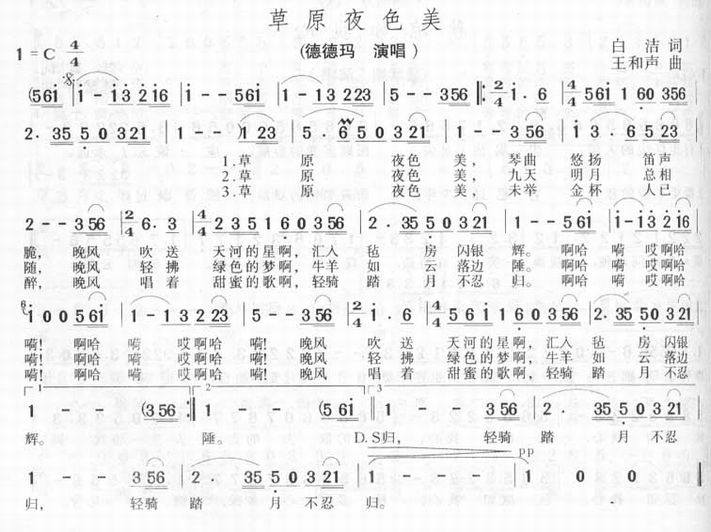 草原夜色美
(德德玛 演唱)
1=C 4/4
白洁 词
王和声 曲
(561 | 1--13 216 | 1--561 | 1--13 223 | 5--356 |: 2/4 1·6 | 4/4 561 160 356 |
2·35 50321 | 1--- 123 | 5·650321 | 1--356 | 13·656 |
1.草 原 夜色 美, 琴曲 悠扬 笛声
2.草 原 夜色 美, 九天 明月 总相
3.草 原 夜色 美, 未举 金杯 人已
2--356 | 2/4 6·3 | 4/4 235160356 | 2·3550321 | 1--561 | 1--13216 |
脆, 晚风 吹送 天河的星啊,汇入 毡 房 闪银 辉。 啊哈 嗬 哎啊哈
随, 晚风 轻拂 绿色的梦啊,牛羊 如 云 落边 陲。 啊哈 嗬 哎啊哈
醉, 晚风 唱着 甜蜜的歌啊,轻骑 踏 月 不忍 归。 啊哈 嗬 哎啊哈
100561 | 1-13223 | 5--356 | 2/4 1·6 | 4/4 561160356 | 2·3550321 |
嗬! 啊哈 嗬 哎啊哈 嗬! 晚风 吹送 天河的星啊,汇入 毡 房 闪银
嗬! 啊哈 嗬 哎啊哈 嗬! 晚风 轻拂 绿色的梦啊,牛羊 如 云 落边
嗬! 啊哈 嗬 哎啊哈 嗬! 晚风 唱着 甜蜜的歌啊,轻骑 踏 月 不忍
1 2 3
1--(356 :| 1--(561 | 1--356 | 2·3550321 |
辉。 陲。 D.S归, 轻骑 踏 月 不忍
pp
1--356 | 2·3550321 | 1--- | 1--- | 1000 ‖
归, 轻骑 踏 月 不忍 归。